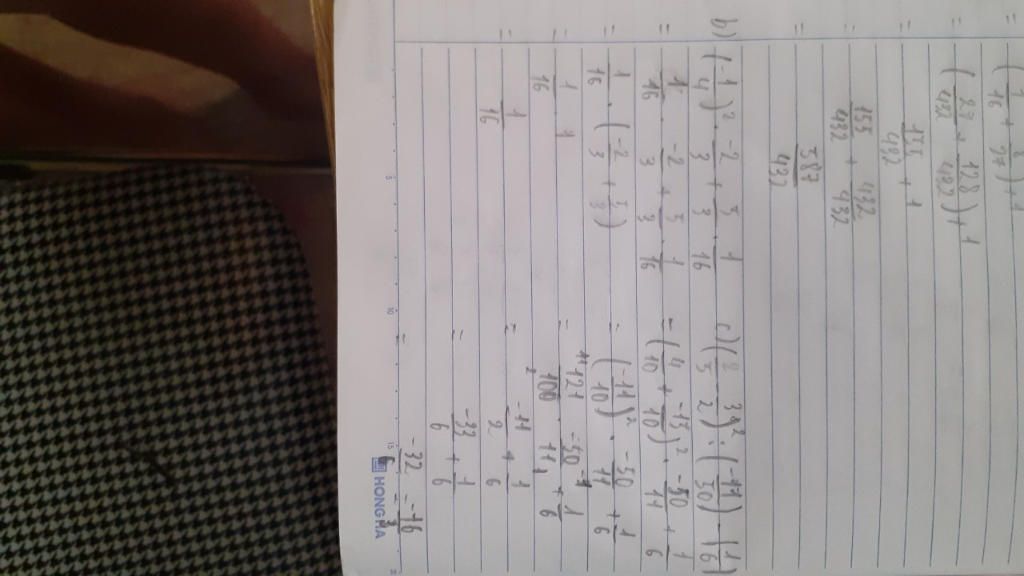 = (1/16 + 8/27) + 1
= (27/432 + 128/432) + 1
= 155/432 + 1
= 155/432 + 432/432
= 587/432
b) (-1/4)² · -2/3 + 5/3 · 1/16
= 1/16 · -2/3 + 5/3 · 1/16
= 1/16 · (-2/3 + 5/3)
= 1/16 · 1
= 1/16
= (4/10 + -15/10)² · -50/11 + 1/6
= (-11/10)² · -50/11 + 1/6
= 121/100 · -50/11 + 1/6
= -11/2 + 1/6
= -33/6 + 1/6
= -32/6 = -16/3
HONGHA